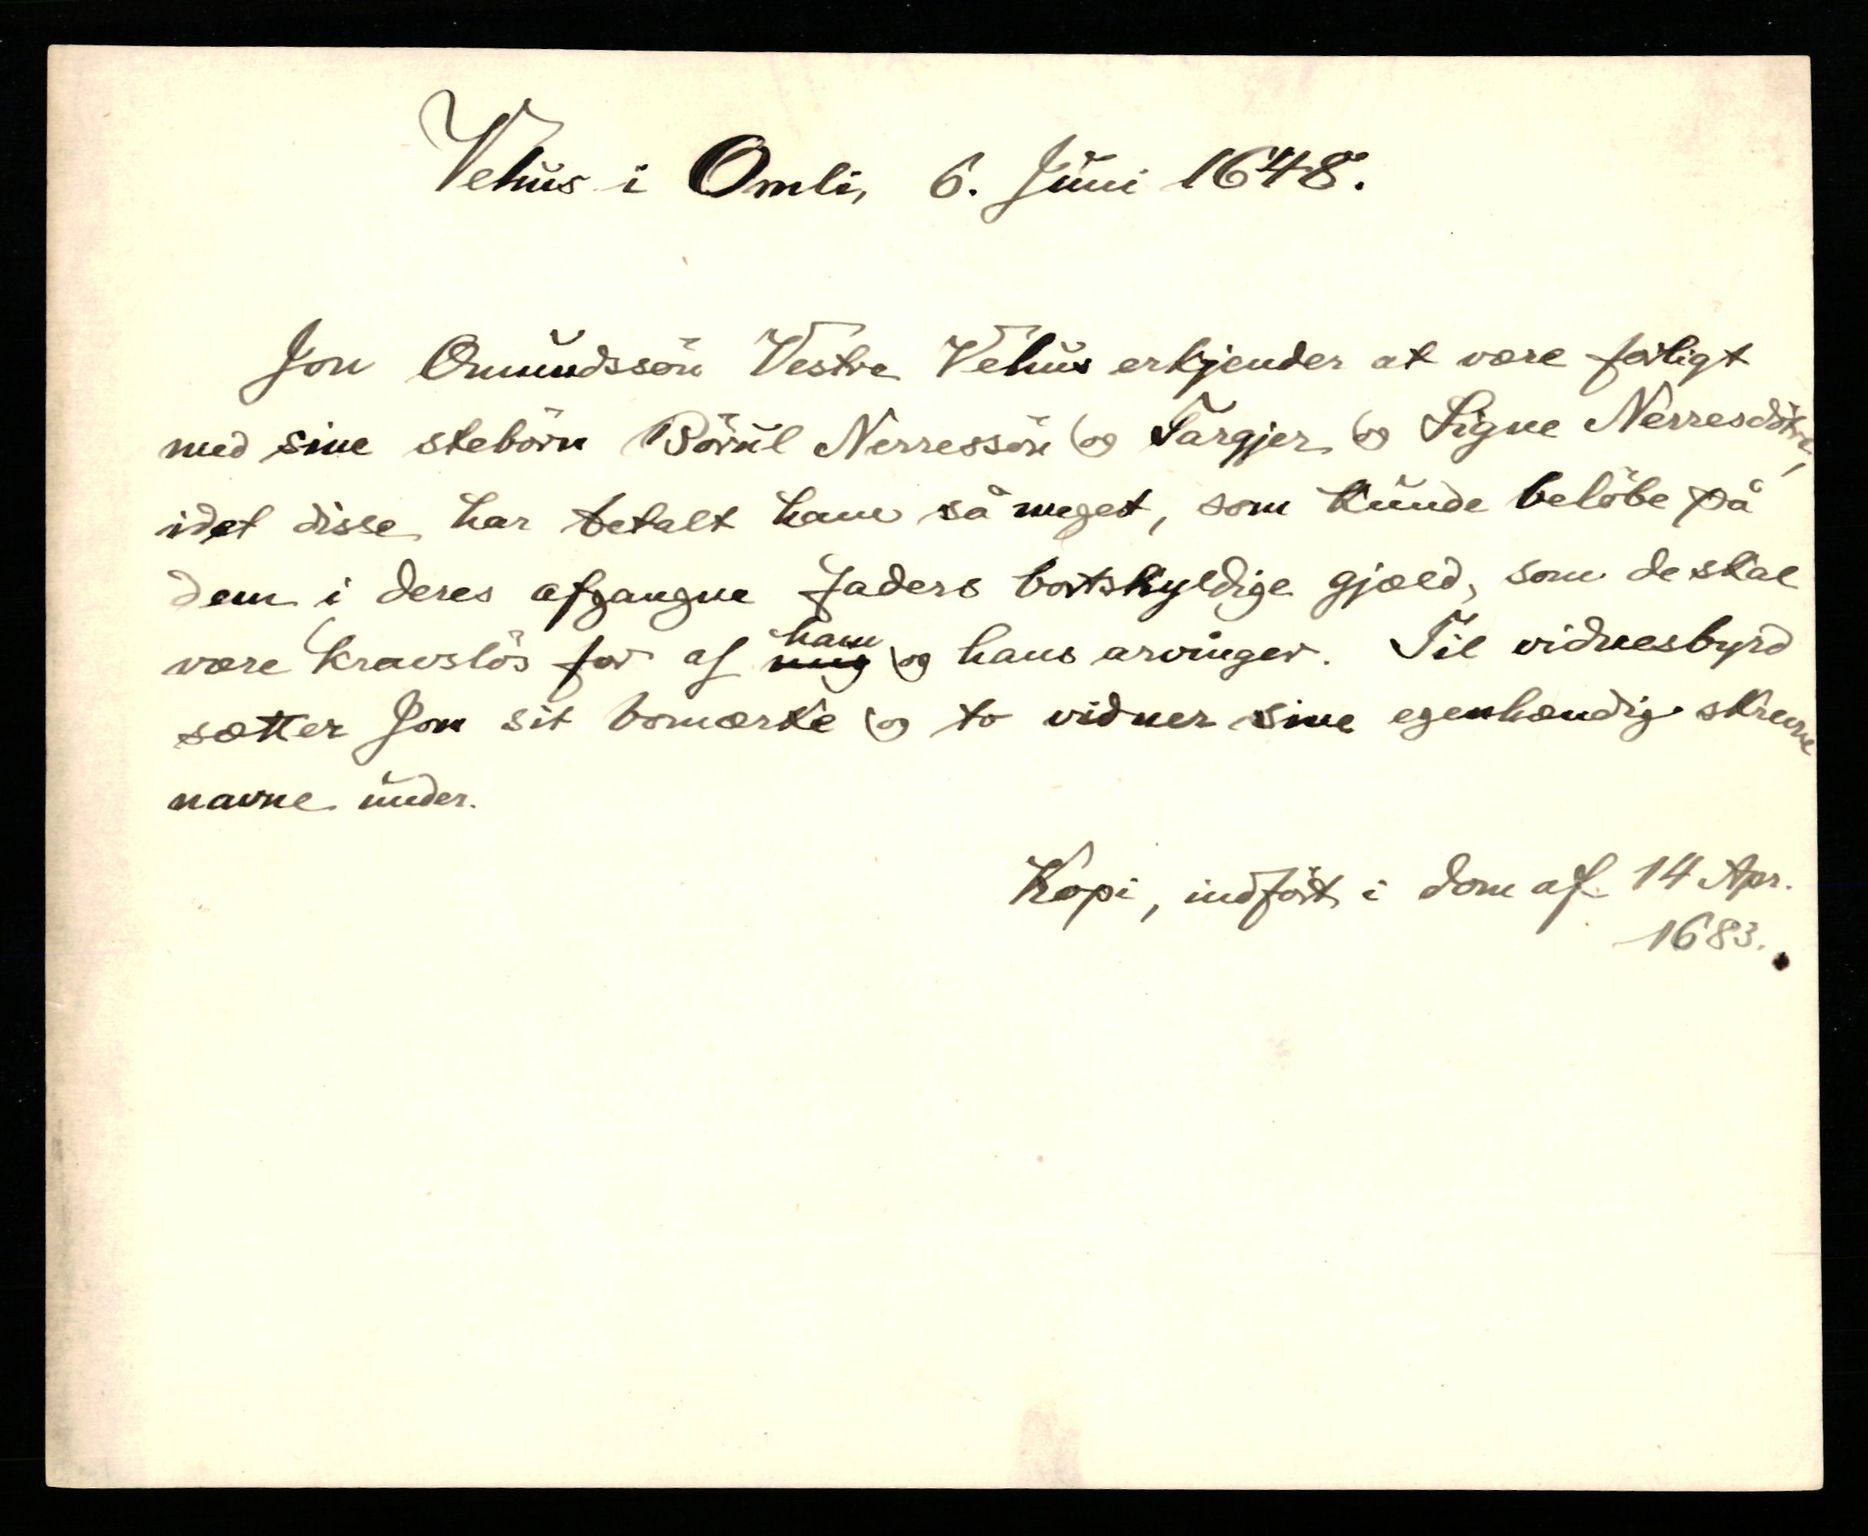 Vehus i Omli, 6. Juni 1648.
Jon Omundssön Vestre Vehus erkjender at være forligt
med sine stebörn Börül Nerressön og Targjer og Signe Nerresdötre,
idet disse har betalt ham så meget, som kunde belöbe på
dem i deres afgangne faders bortskyldige gjæld, som de skal
være kravslös for af ham og hans arvinger. Til vidnesbyrd
sætter Jon sit bomærke og to vidner sine egenhændig skrevne
navne under.
Kopi, indfört i dom af 14 Apr.
1683.